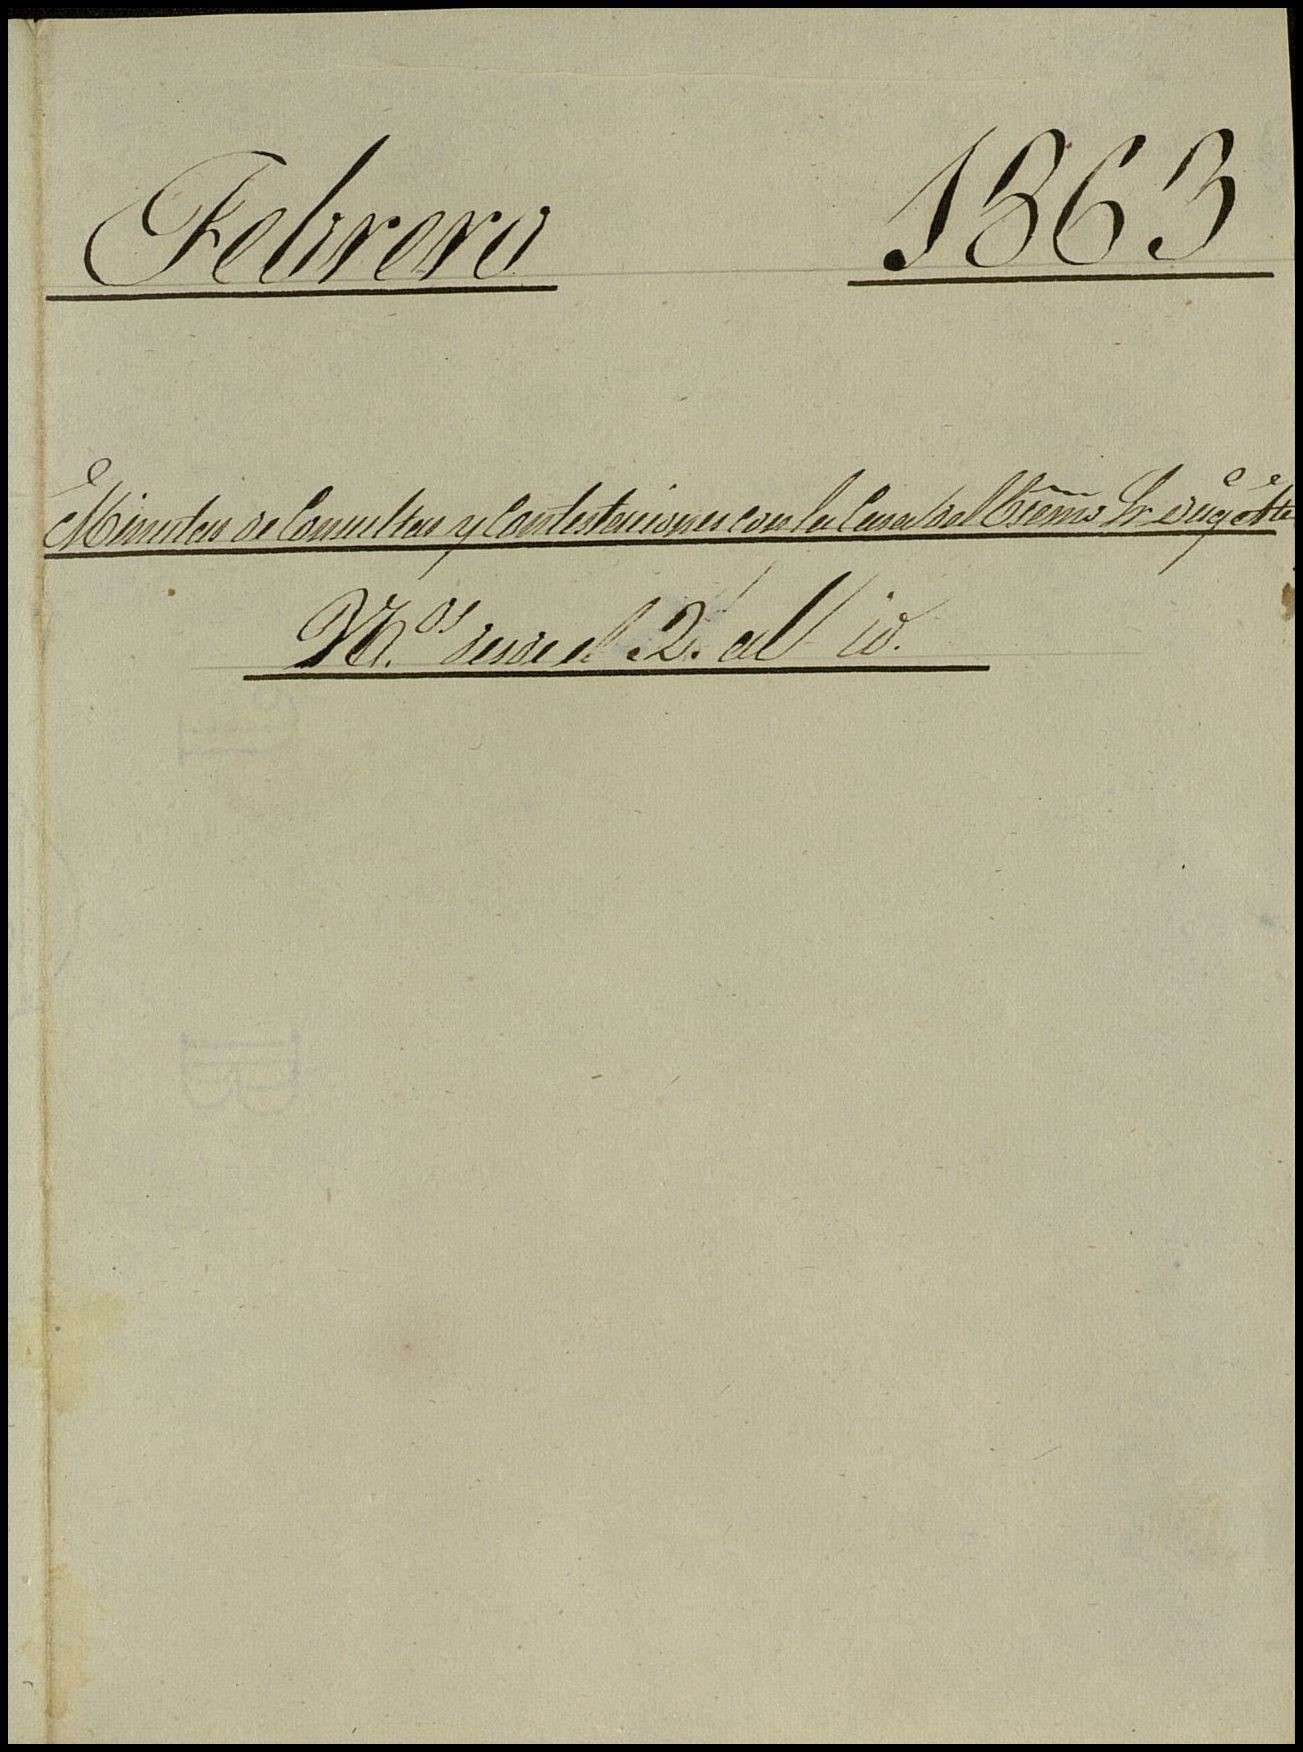 Febrero 1863
Minutas de Consultas y Contestaciones con la Casa del Excmo Sr Duq. de
N.os desde el 2. al 10.